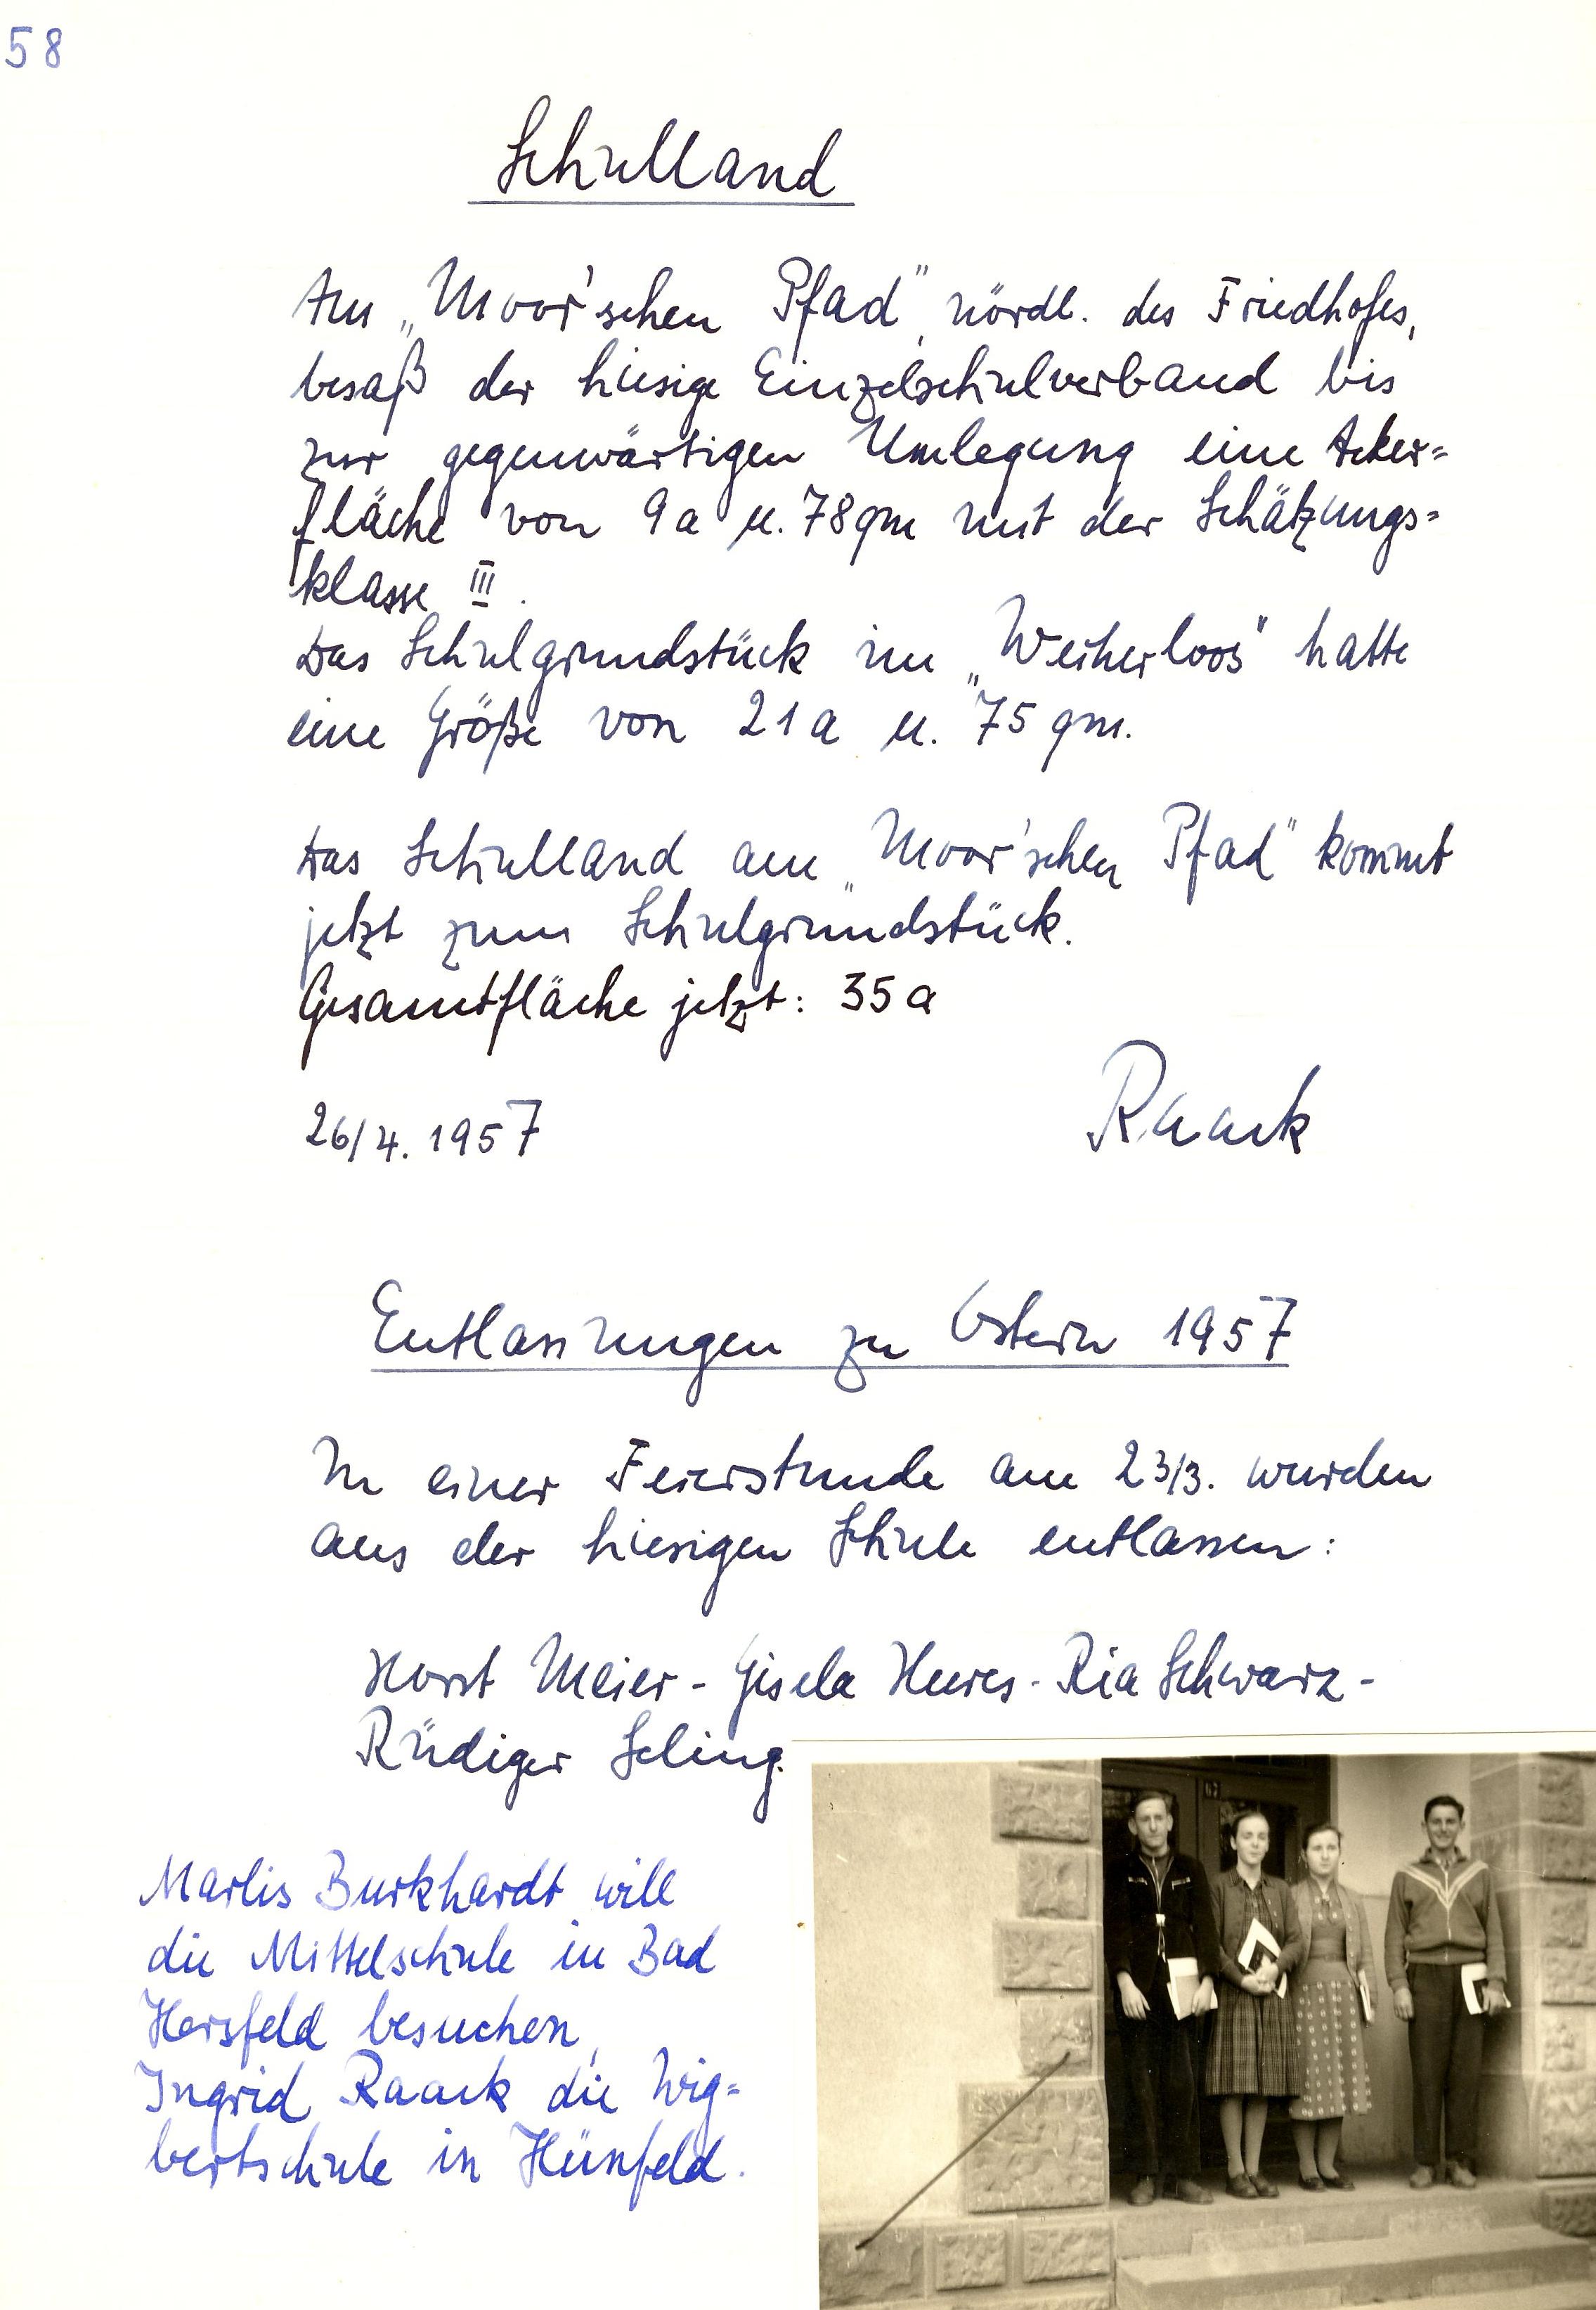 58
Schulland
Am „Moor'schen Pfad", nördl. des Friedhofes,
besaß der hiesige Einzelschulverband bis
zur gegenwärtigen Umlegung eine Acker=
fläche von 9a u. 78qm mit der Schätzungs=
klasse III.
Das Schulgrundstück im „Weiherloos" hatte
eine Größe von 21a u. 75 qm.
Das Schulland am „Moor'schen Pfad" kommt
jetzt zum Schulgrundstück.
Gesamtfläche jetzt: 35a
26/4. 1957 Raack
Entlassungen zu Ostern 1957
In einer Feierstunde am 23/3. wurden
aus der hiesigen Schule entlassen:
Horst Meier - Gisela Heeres - Ria Schwarz -
Rüdiger Seling.
Marlis Burkhardt will
die Mittelschule in Bad
Hersfeld besuchen,
Ingrid Raack die Wig=
bertschule in Hünfeld.